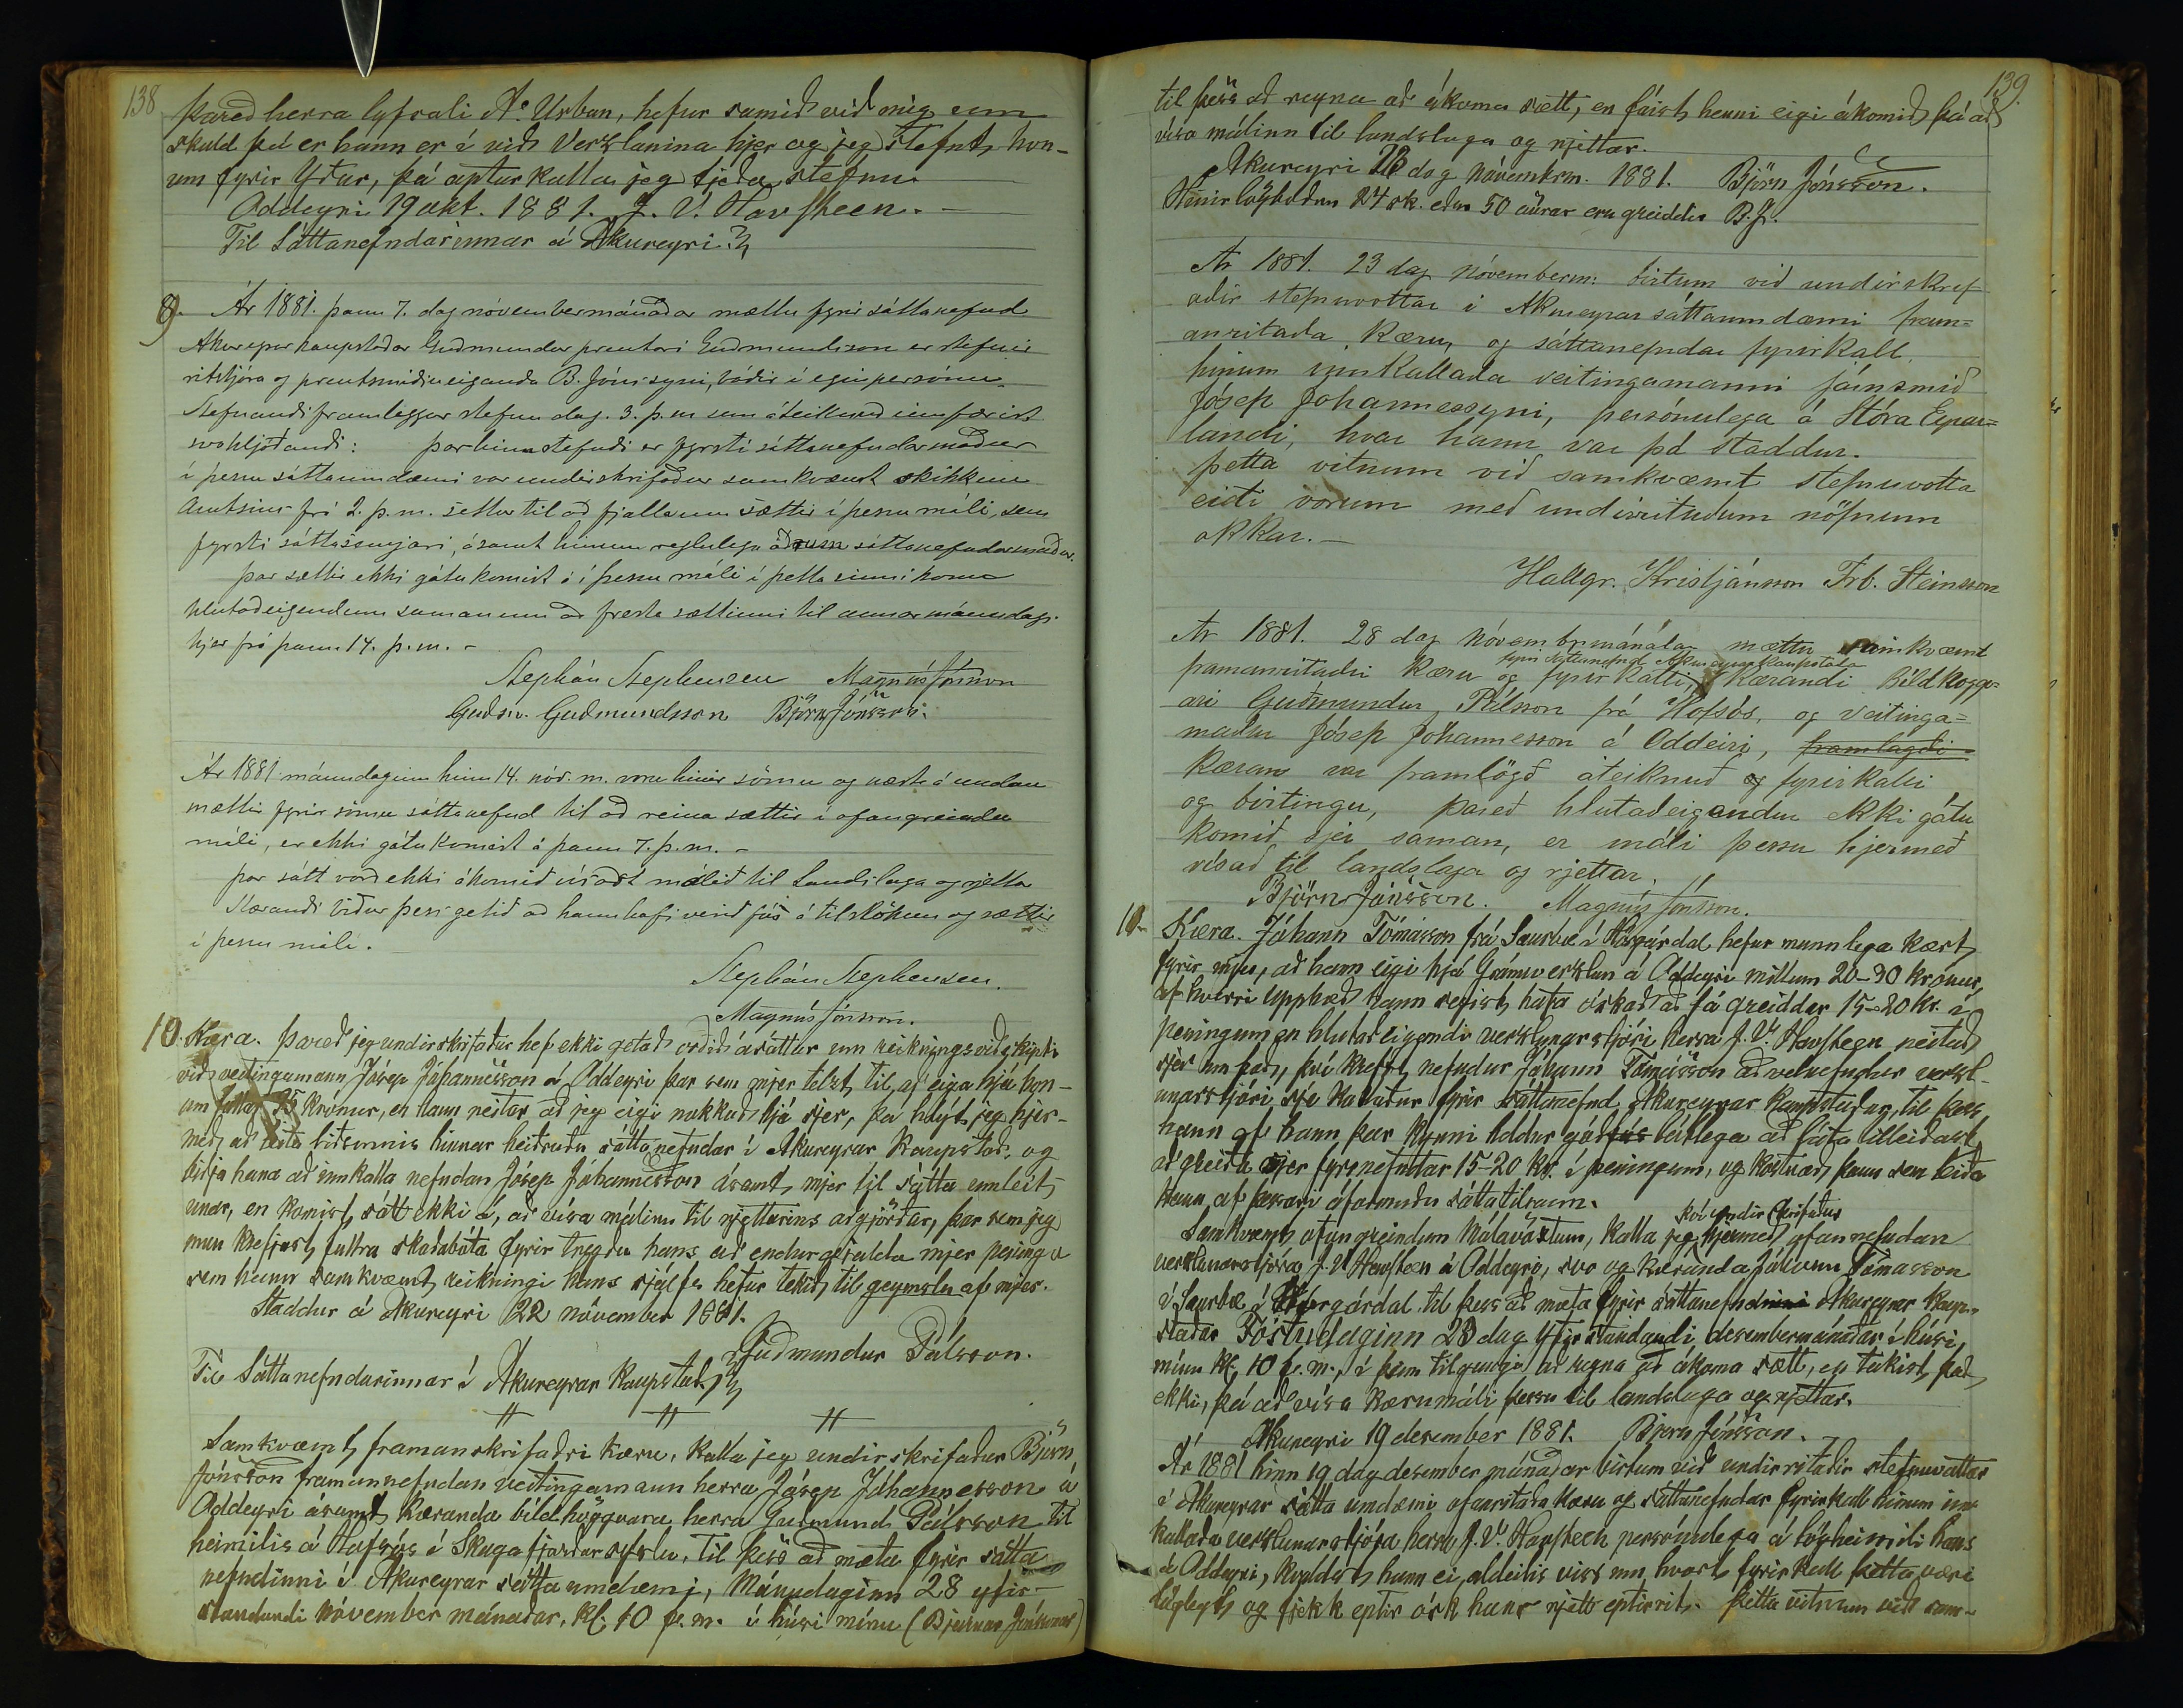 138
þareð herra lyfsali A. Urban, hefur samið við mig um
skuld þá er hann er í við Verzlanina hjer og jeg stefnt hon-
um fyrir Yður, þá apturkalla jeg tjeða stefnu.
Oddeyri 19 okt. 1881. J. V. Havsteen.
Til Sáttanefndarinnar á Akureyri
9. Ár 1881. þann 7. dag nóvembermánaðar mættu fyrir sáttanefnd
Akureyrar kaupstaðar Guðmundur prentari Guðmundsson er stefnir
ritstjóra og prentsmiðjueiganda B. Jónssyni, báðir í eginpersónu.
Stefnandi framleggur stefnu dag. 3. þ.m. sem áteiknuð innfærist
svohljóðandi: Þar hinn stefndi er fyrsti sáttanefndarmaður
í þessu sáttaumdæmi var undirskrifaður samkvæmt skikkun
Amtsins frá 2. þ.m. settur til að fjalla um sættir í þessu máli, sem
fyrsti sáttasemjari, ásamt hinum reglulega öðrum sáttanefndarmaður.
Þar sættir ekki gátu komist á í þessu máli í þetta sinni kom
hlutaðeigendum saman um að fresta sættinni til annars mánudags
hjer frá þann 14. þ.m. -
Stephán Stephensen Magnús Jónsson
Guðm. Guðmundsson Björn Jónsson.
Ár 1881 mánudaginn hinn 14. nóv. m. voru hinir sömu og næst á undan
mættir fyrir sömu sáttanefnd til að reina sættir í ofangreindu
máli, er ekki gátu komist á þann 7. þ.m. -
Þar sátt varð ekki ákomið vísaðst málið til Landslaga og rjetta
Kærandi biður þess getið að hann hafi verið fús á tilslökun og sættir
í þessu máli.
Stephán Stephensen.
Magnús Jónsson.
10. Kæra. Þareð jeg undirskrifaður hef ekki getað orðið ásáttur um reikningsviðskipti
við veitingamann Jósep Jóhannesson á Oddeyri þar sem mjer telst til að eiga hjá hon-
um 75 krónur, en hann neitar að jeg eigi nokkuð hjá sjer, þá hlýt jeg hjer-
með að leita liðsinnis hinnar heiðruðu sáttanefndar í Akureyrar kaupstað, og
biðja hana að innkalla nefndan Jósep Jóhannesson ásamt mjer til sátta umleit-
unar, en komist sátt ekki á, að vísa málinu til rjettarins aðgjörðar, þar sem jeg
mun krefjast fullra skaðabóta fyrir tregðu hans að endurgjalda mjer peninga
sem hann samkvæmt reikningi hans sjálfs hefur tekið til geymslu af mjer.
Staddur á Akureyri 22 nóvember 1881.
Guðmundur Pálsson.
Til Sáttanefndarinnar í Akureyrar kaupstað
Samkvæmt framanskrifaðri kæru, kalla jeg undirskrifaður Björn
Jónsson framannefndan veitingamann herra Jósep Jóhannesson á
Oddeyri ásamt kæranda bíldhöggvara herra Guðmund Pálsson til
heimilis á Hofsós í Skagafjarðarsýslu, til þess að mæta fyrir sátta
nefndinni í Akureyrar sáttaumdæmi, Mánudaginn 28 yfir-
standandi nóvember mánaðar, kl. 10 f.m. í húsi mínu (Björns Jónssonar)
139.
til þess að reyna að ákoma sætt, en fáist henni eigi ákomið þá að
vísa málinu til landslaga og rjettar.
Akureyri 23 dag nóvembrm. 1881. Björn Jónsson.
Hinir lögboðnu 24 sk. eður 50 aurar eru greiddir B.Js.
Ár 1881. 23 dag nóvemberm: birtum við undirskrif
aðir stefnuvottar í Akureyrar sáttaumdæmi fram=
anritaða kæru og sáttanefndar fyrirkall
hinum innkallaða veitingamanni járnsmið
Jósep Jóhannessyni, persónulega á Stóra Eyrar=
landi, hvar hann var þá staddur.
Þetta vitnum við samkvæmt stefnuvotta
eiði vorum með undirrituðum nöfnum
okkar.—
Hallgr. Kristjánsson Frb. Steinsson
Ár 1881. 28 dag nóvembrmánáðar mættu samkvæmt
fyrir sáttanefnd Akureyrarkaupstaðar
framanritaðri kæru og fyrirkalli, kærandi Bíldhögg=
ari Guðmundur Pálsson frá Hofsós, og veitinga=
maður Jósep Jóhannesson á Oddeiri, framlagði
Kæran var framlögð áteiknuð og fyrirkalli
og birtingu, þareð hlutaðeigendur ekki gátu
komið sjer saman, er máli þessu hjermeð
vísað til landslaga og rjettar.
Björn Jónsson. Magnús Jónsson.
10. Kæra. Jóhann Tómásson frá Saurbæ í Hörgárdal hefur munnlega kært
fyrir mjer, að hann eigi hjá Gránuverzlun á Oddeyri millum 20-30 krónur,
af hverri upphæð hann segist hafa óskað að fá greiddar 15-20 kr. í
peningum en hlutaðeigandi verzlunarstjóri herra J. V. Havsteen neitað
sjer um það, því krefst nefndur Jóhann Tómásson að velnefndur verzl-
unarstjóri sje kallaður fyrir sáttanefnd Akureyrar kaupstaðar, til þess
hann af hann þar kynni að láta tilleiðast
að greiða mjer fyrnefndar 15-20 kr. í peningum, og kostnað þann sem leiða
kann af þessari áformuðu sáttatilraun.
Samkvæmt ofangreindum málavöxtum, kalla jeg undirskrifaður hjermeð ofannefndan
verzlunarstjóra J. V. Havsteen á Oddeyri, svo og kæranda Jóhann Tómasson
í Saurbæ í Hörgárdal til þess að mæta fyrir sáttanefndinni Akureyrar kaup-
staðar Föstudaginn 23 dag yfirstandandi desembermánaðar í húsi
mínu kl. 10 f.m., í þeim tilgangi að reyna að ákoma sætt, en takist það
ekki, þá að vísa kærumáli þessu til landslaga og rjettar.
Akureyri 19 desember 1881. Björn Jónsson.
Ár 1881 hinn 19 dag desember mánaðar birtum við undirritaðir stefnuvottar
í Akureyrar sátta umdæmi ofanritaða kæru og sáttanefndar fyrirkall hinum inn
kallaða verzlunarstjóra herra J. V. Havsteen persónulega á lögheimili hans
á Oddeyri, kvaðst hann ei aldeilis viss um, hvort fyrirkall þetta væri
löglegt og fjekk eptir ósk hans rjett eptirrit. Þetta vitnum við sam-